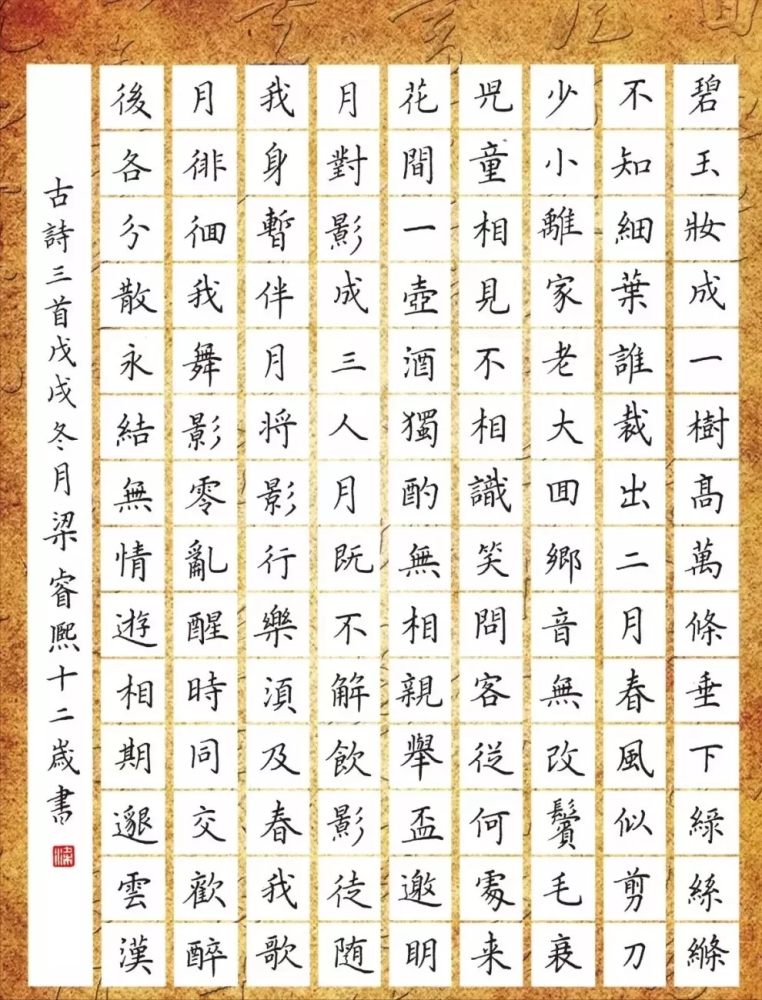 碧玉妝成一樹髙萬條垂下緑絲縧
不知細葉誰裁出二月春風似剪刀
少小離家老大囬鄉音無改鬢毛衰
兒童相見不相識笑問客從何處来
花間一壺酒獨酌無相親舉盃邀明
月對影成三人月既不解飲影徒随
我身暫伴月将影行樂須及春我歌
月徘徊我舞影零亂醒時同交歡醉
後各分散永結無情遊相期邈雲漢
古詩三首戊戌冬月梁睿熙十二歲書
梁